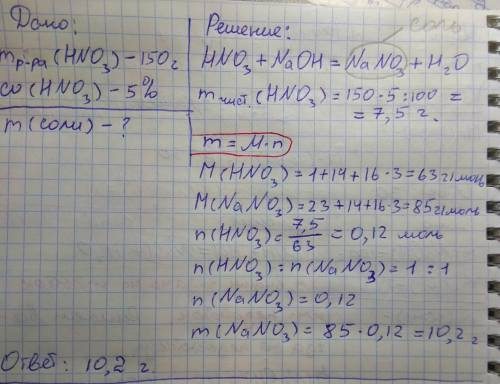 Дано:
m р-ра (HNO₃) - 150 г
ω (HNO₃) - 5%
m (соли) - ?
Решение:
соль
HNO₃ + NaOH = NaNO₃ + H₂O
m чист. (HNO₃) = 150 · 5 : 100 =
= 7,5 г.
m = M · n
M (HNO₃) = 1 + 14 + 16 · 3 = 63 г/моль
M (NaNO₃) = 23 + 14 + 16 · 3 = 85 г/моль
n (HNO₃) = 7,5/63 = 0,12 моль
n (HNO₃) : n (NaNO₃) = 1 : 1
n (NaNO₃) = 0,12
m (NaNO₃) = 85 · 0,12 = 10,2 г
Ответ: 10,2 г.